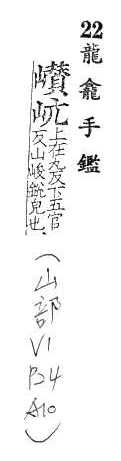 22
龍龕手鑑
巑岏上在丸反下五官
反山峻銳皃也
(山部V1
B4
A10)